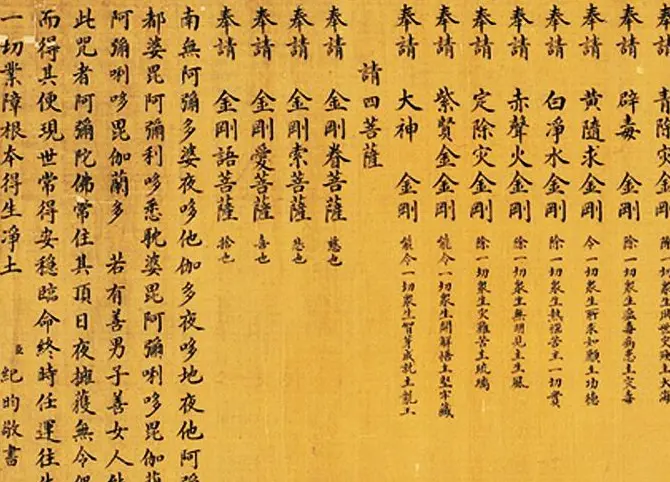 青除灾金剛
奉請 辟毒 金剛 除一切衆生瘟毒病患主灾毒
奉請 黃隨求金剛 令一切衆生所求如願主功德
奉請 白淨水金剛 除一切衆生熱惱苦主一切寳
奉請 赤聲火金剛 除一切衆生無明見主生風
奉請 定除灾金剛 除一切衆生灾難苦主琉璃
奉請 紫賢金金剛 能令一切衆生開解悟主堅牢藏
奉請 大神 金剛 能令一切衆生智芽成就主龍王
請四菩薩
奉請 金剛眷菩薩 慈也
奉請 金剛索菩薩 悲也
奉請 金剛愛菩薩 喜也
奉請 金剛語菩薩 捨也
南無阿彌多婆夜哆他伽多夜哆地夜他阿彌
都婆毘阿彌利哆悉耽婆毘阿彌唎哆毘伽蘭
阿彌唎哆毘伽蘭多 若有善男子善女人能
此咒者阿彌陀佛常住其頂日夜擁護無令
而得其便現世常得安穩臨命終時任運往生
一切業障根本得生淨土 臣 紀昀敬書